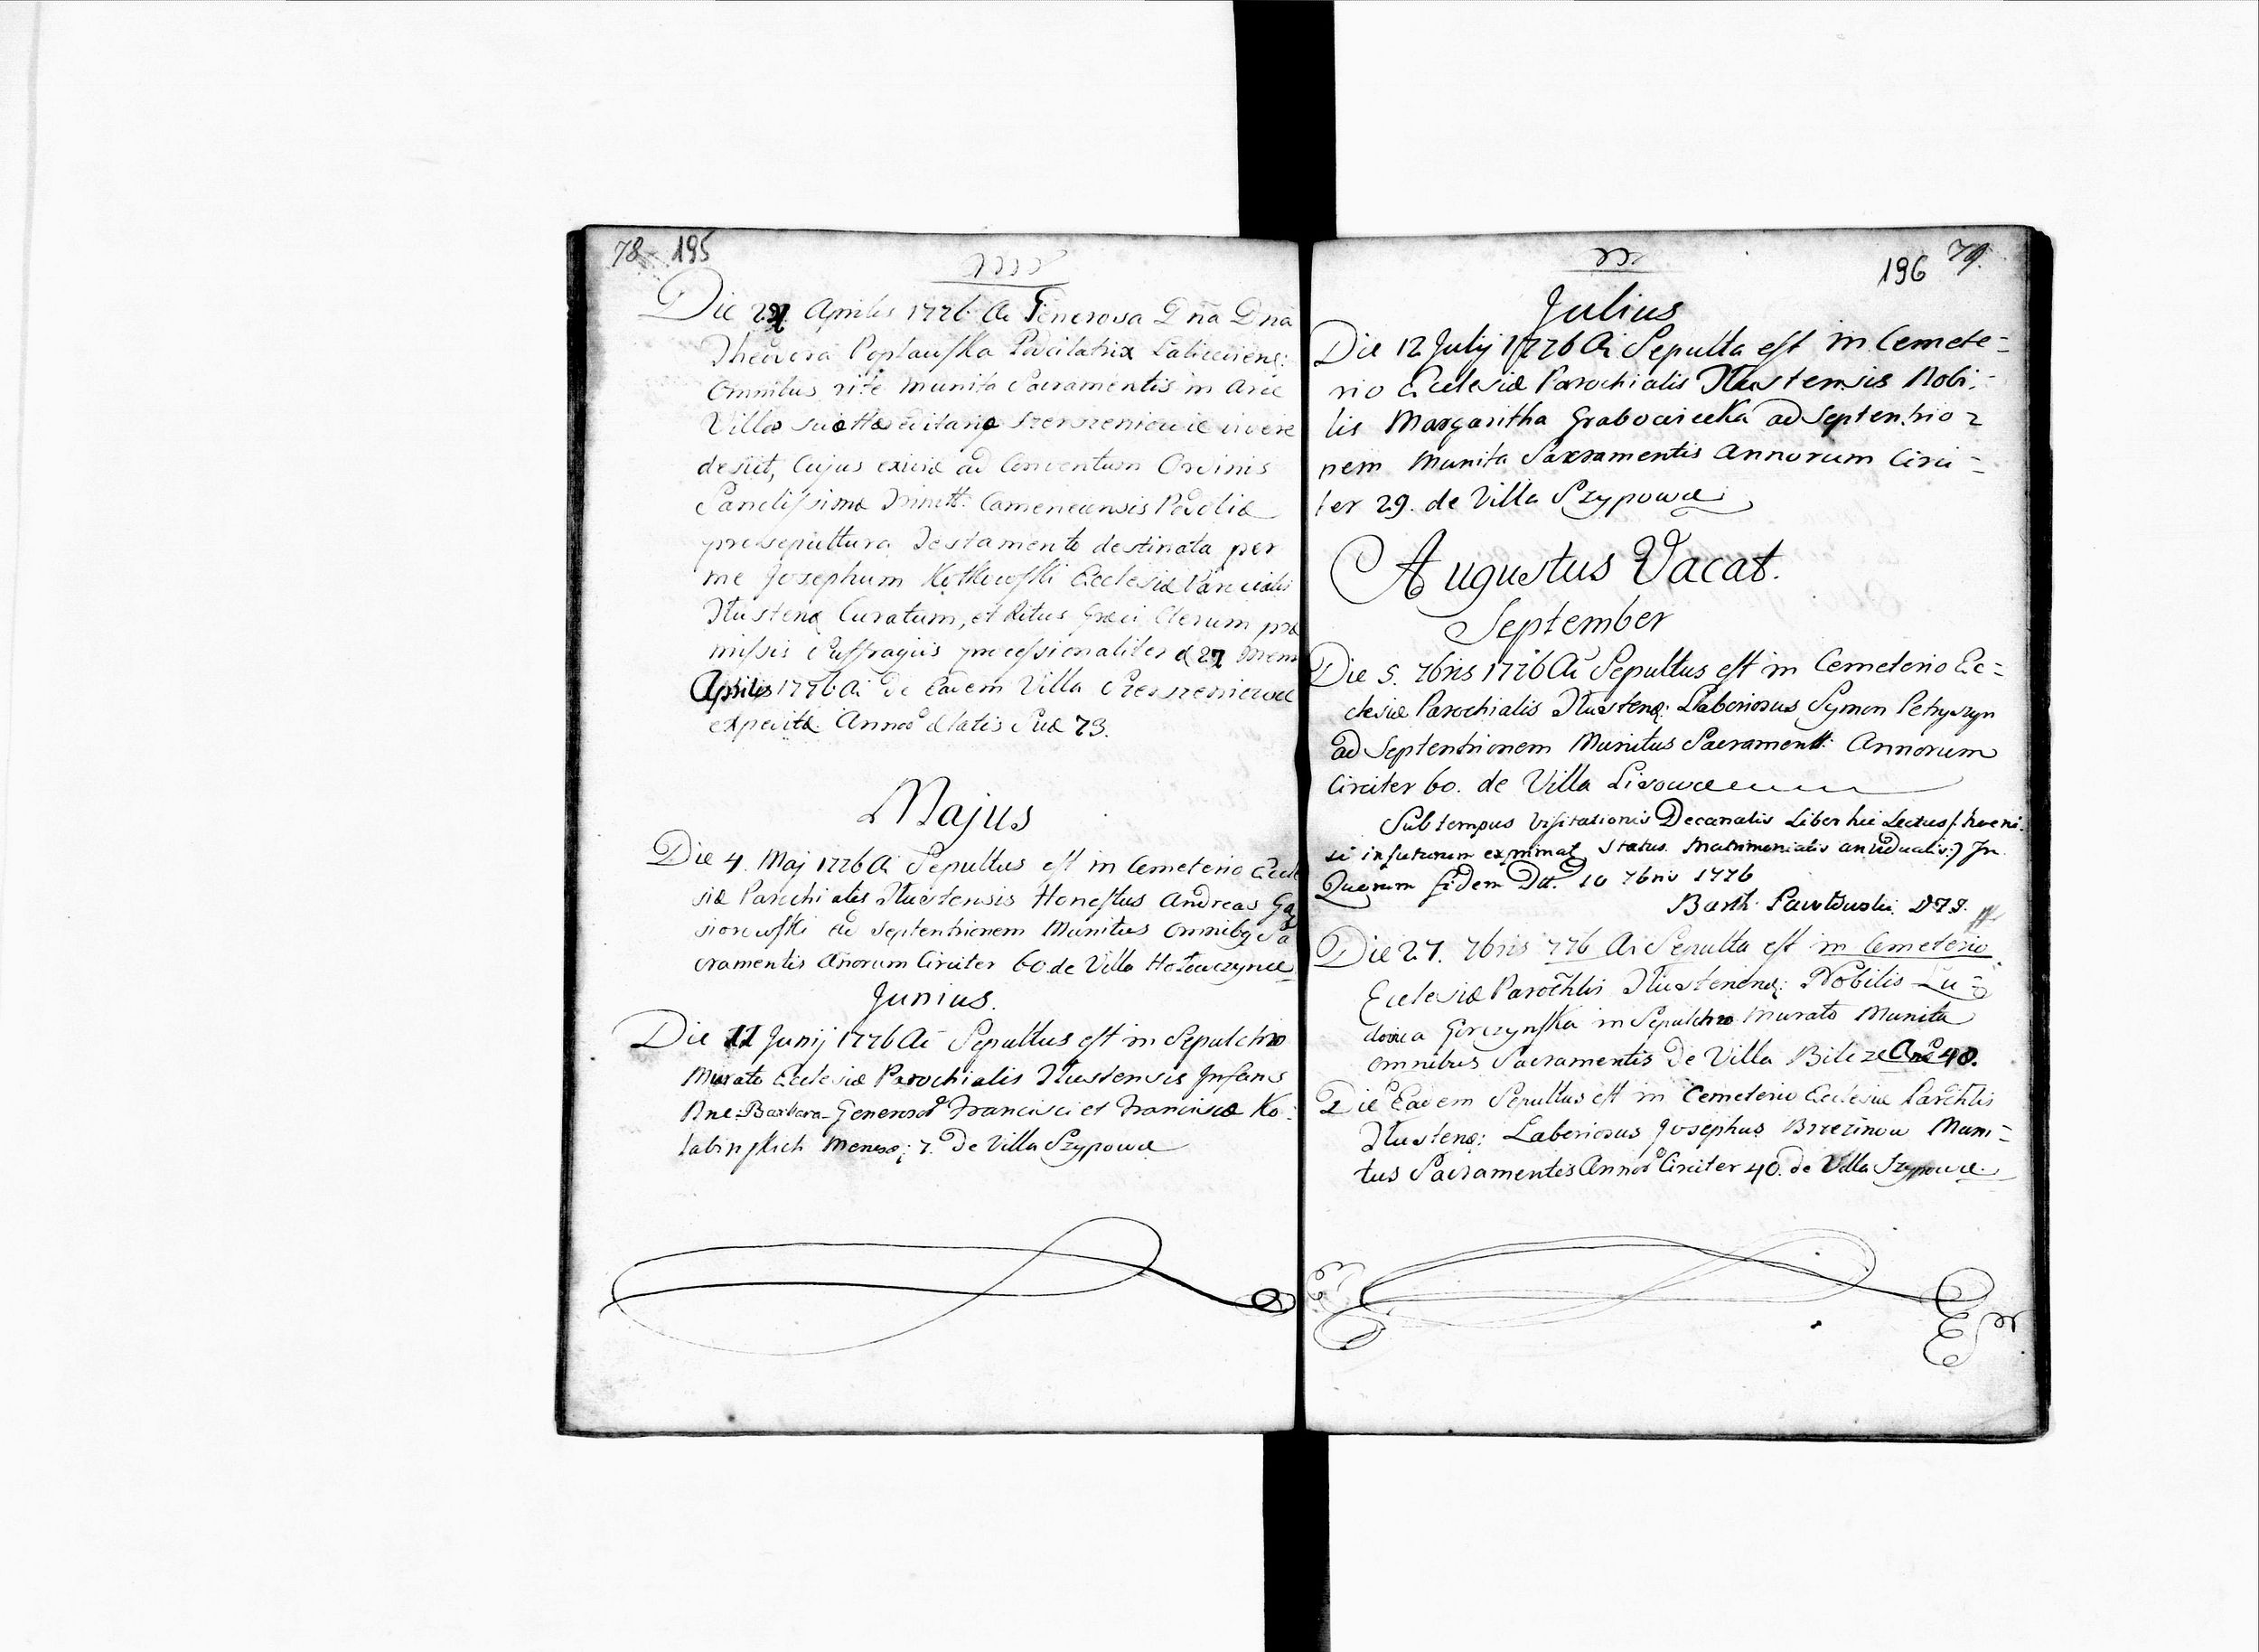 78 195
Die Aprilis 1776 Ai Generosa Dña Dña
Theodora Poplawska Pocilatrix
omnibus rite munita Sacramentis in Arce
Villæ suæ Hæreditariæ Szerszeniowie vivere
desiit, Cujus ad Conventum Ordinis
Sanctissimæ Trinitt: Camenecensis Podoliæ
pro sepulttura Testamento destinata per
me Josephum Ecclesiæ
Ttustenæ Curatum, et Ritus Græci Clerum præ
missis Suffragiis processionaliter d 27
Aprilis 1776 Ai de Eadem Villa
Annor ætatis Suæ 73.
Majus
Die 4. Maj 1776 Ai Sepultus est in Cemeterio Eccle
siæ Parochialis Ttustensis Honestus Andreas Gą
siorowski ad Septentrionem Munitus omnibq Sa
cramentis Añorum Circiter 60 de Villa Hołowczynce
Junius.
Die 11 Junij 1776 Ai Sepultus est in Sepulchro
Murato Ecclesiæ Parochialis Ttustensis Infans
Barbara Generosor Francisci et Franciscæ Ko:
labinskich 7. De Villa Szypowce
196 79.
Julius
Die 12 Julij 1776 Ai Sepulta est in Cemete=
rio Ecclesiæ Parochialis Ttustensis Nobi=
lis Margaritha Grabowiecka ad Septentrio=
nem Munita Sacramentis Annorum Circi=
ter 29. de Villa Szypowce
Augustus Vacat.
September
Die 5. 7bris 1776 Ai Sepultus est in Cemeterio Ec=
clesiæ Parochialis Ttustenę: Laboriosus Symon Petryszyn
ad Septentrionem Munitus Sacramentt: Annorum
Circiter 60. de Villa Lisowce
Sub tempus Visitationis Decanalis Liber hic Lectus
in futurum exprimat Status Matrimonialis an Vidualis:) In
Quorum fidem Dtt. 10 7bris 1776
Barth.
Die 27. 7bris 776 Ai Sepulta est in Cemeterio
Ecclesiæ Parochlis Ttustenens: Nobilis Lu=
dovica Gorczynska in Sepulchro Murato Munita
omnibus Sacramentis De Villa Bilcze 40.
Die Eadem Sepultus est in Cemeterio Ecclesiæ Parchlis
Ttustenę: Laboriosus Josephus Brzezinow Muni=
tus Sacramentis Annor Circiter 40. de Villa Szypowce.